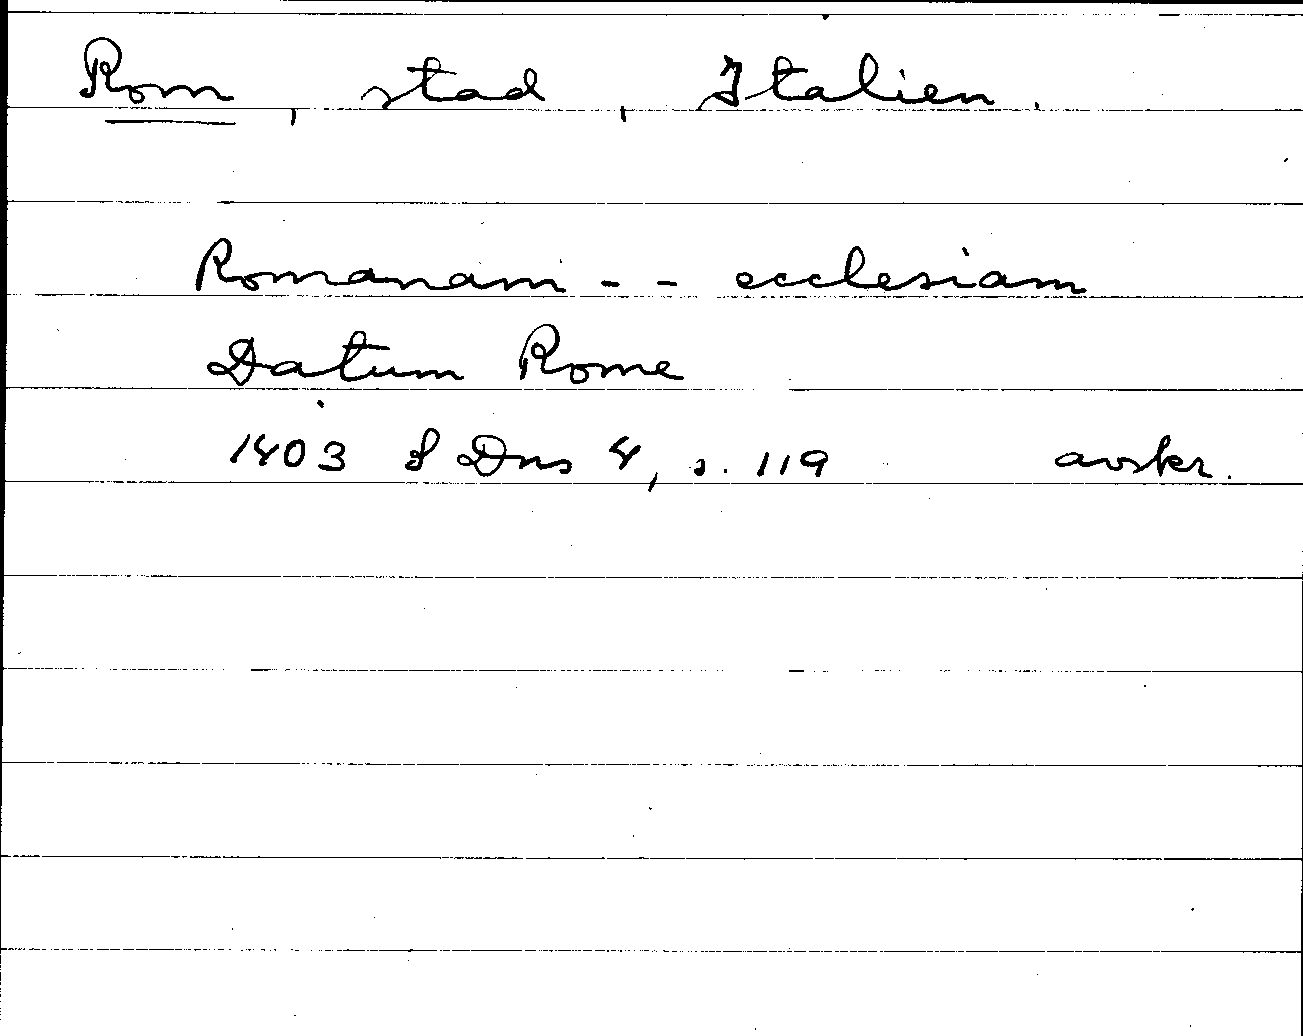 Rom, stad, Italien.
Romanam -- ecclesiam
Datum Rome
1403 S Dns 4, s. 119 avskr.